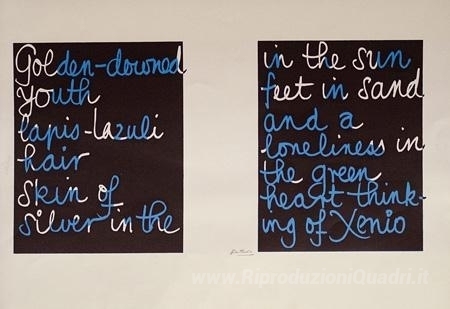 Golden-downed
youth
lapis-lazuli
hair
skin of
silver in the
in the sun
feet in sand
and a
loneliness in
the green
heart think-
ing of Xenio
www.RiproduzioniQuadri.it